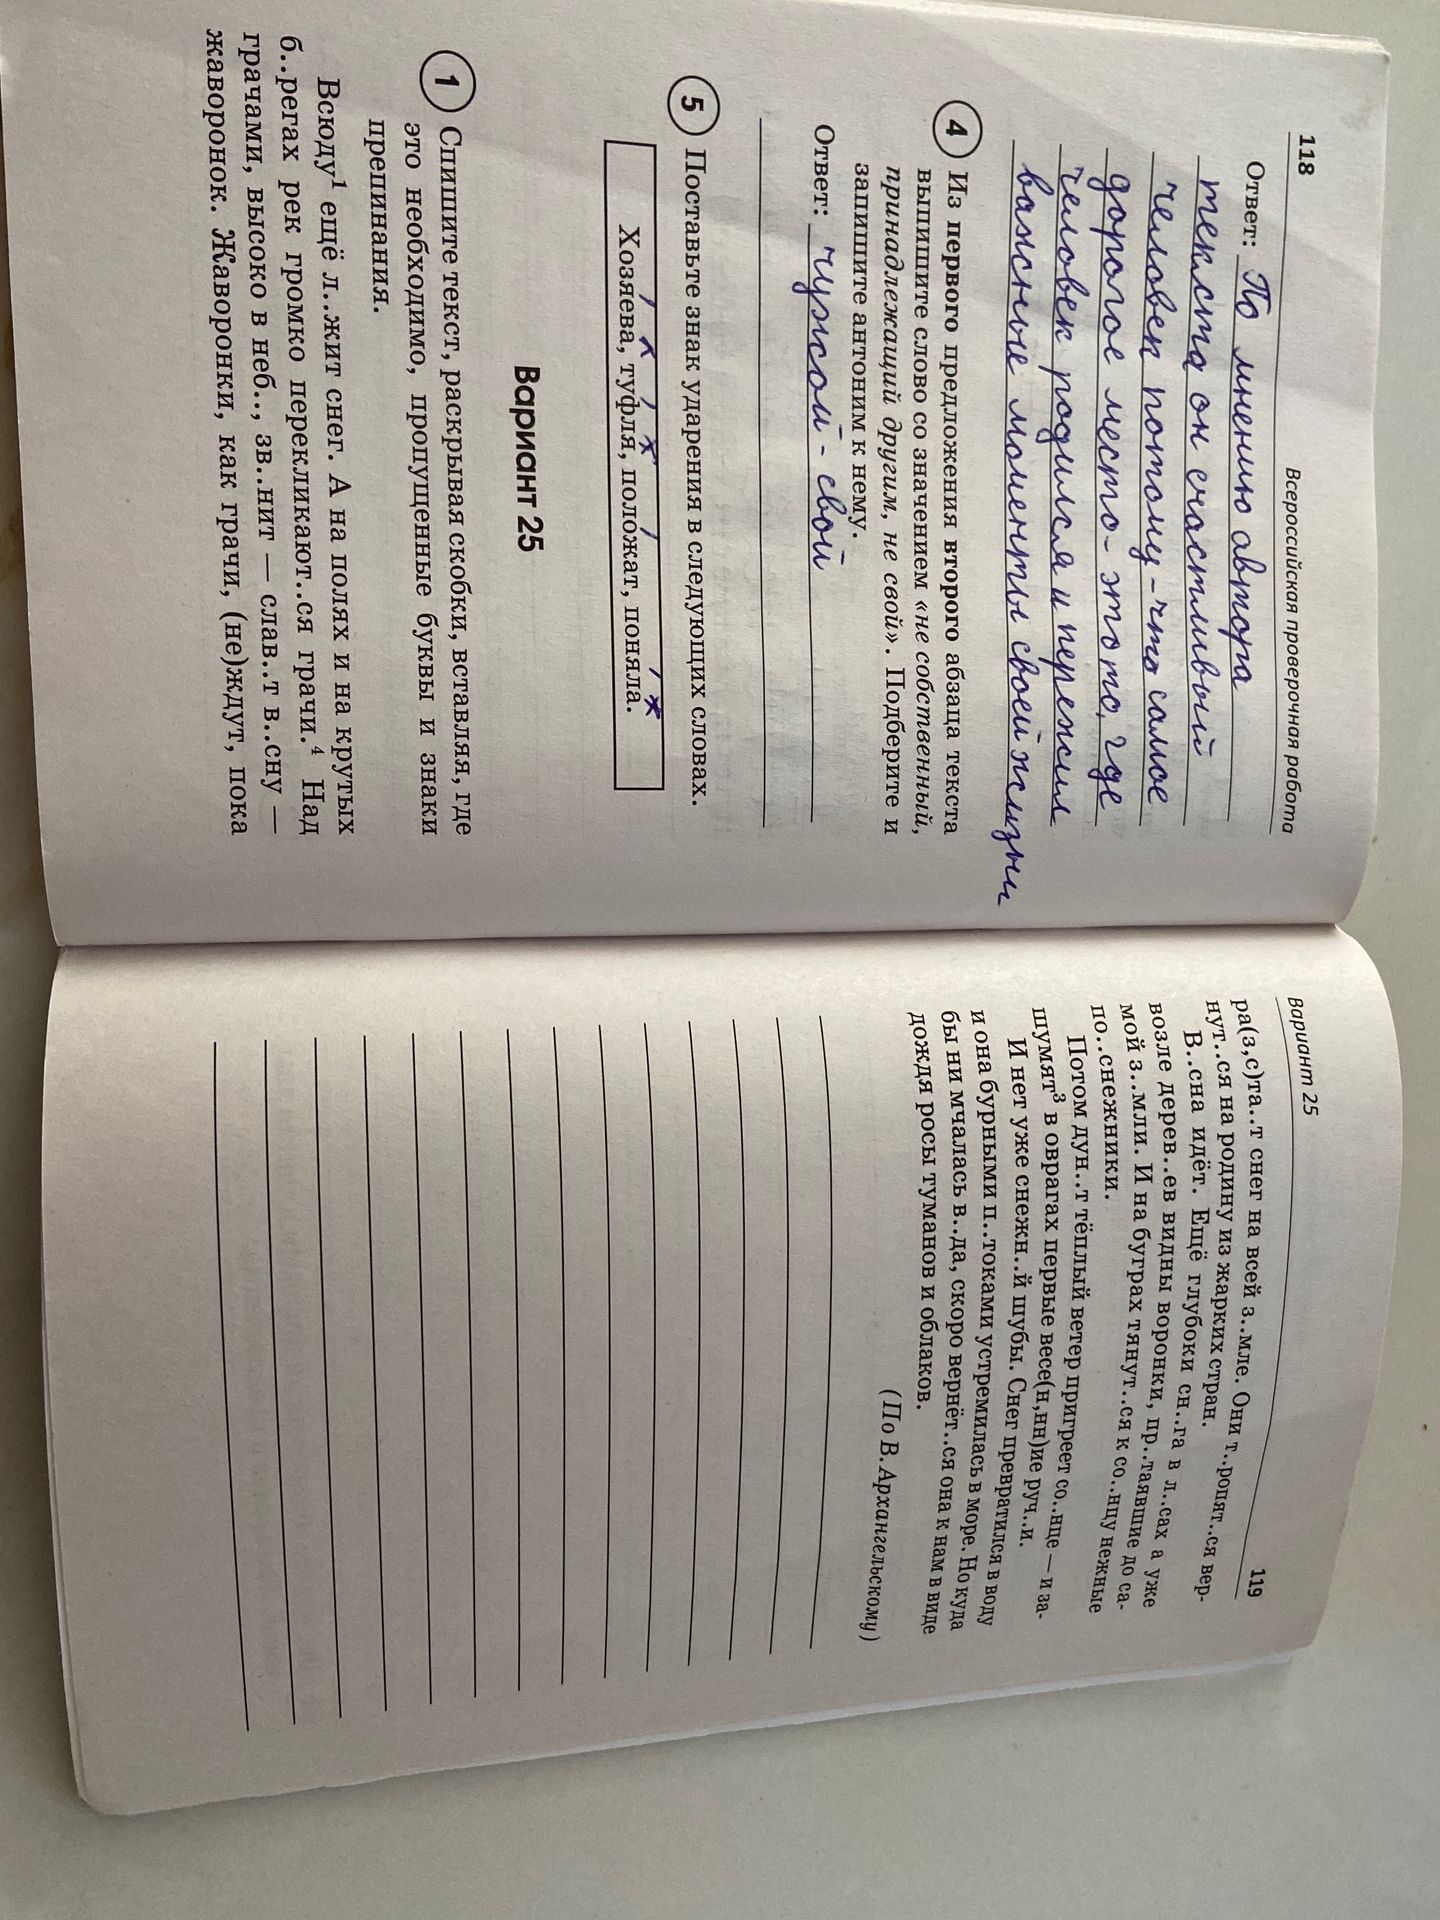 118
Всероссийская проверочная работа
Ответ: По мнению автора
текста он счастливый
человек потому-что самое
дорогое место- это то, где
человек родился и пережил
важные моменты своей жизни
4 Из первого предложения второго абзаца текста
выпишите слово со значением «не собственный,
принадлежащий другим, не свой». Подберите и
запишите антоним к нему.
Ответ: чужой - свой
5 Поставьте знак ударения в следующих словах.
Хозяева, туфля, положат, поняла.
Вариант 25
1 Спишите текст, раскрывая скобки, вставляя, где
это необходимо, пропущенные буквы и знаки
препинания.
Всюду¹ ещё л..жит снег. А на полях и на крутых
б..регах рек громко перекликают..ся грачи.⁴ Над
грачами, высоко в неб.., зв..нит — слав..т в..сну —
жаворонок. Жаворонки, как грачи, (не)ждут, пока
Вариант 25
119
ра(з,с)та..т снег на всей з..мле. Они т..ропят..ся вер-
нут..ся на родину из жарких стран.
В..сна идёт. Ещё глубоки сн..га в л..сах а уже
возле дерев..ев видны воронки, пр..таявшие до са-
мой з..мли. И на буграх тянут..ся к со..нцу нежные
по..снежники.
Потом дун..т тёплый ветер пригреет со..нце — и за-
шумят³ в оврагах первые весе(н,нн)ие руч..и.
И нет уже снежн..й шубы. Снег превратился в воду
и она бурными п..токами устремилась в море. Но куда
бы ни мчалась в..да, скоро вернёт..ся она к нам в виде
дождя росы туманов и облаков.
(По В. Архангельскому)